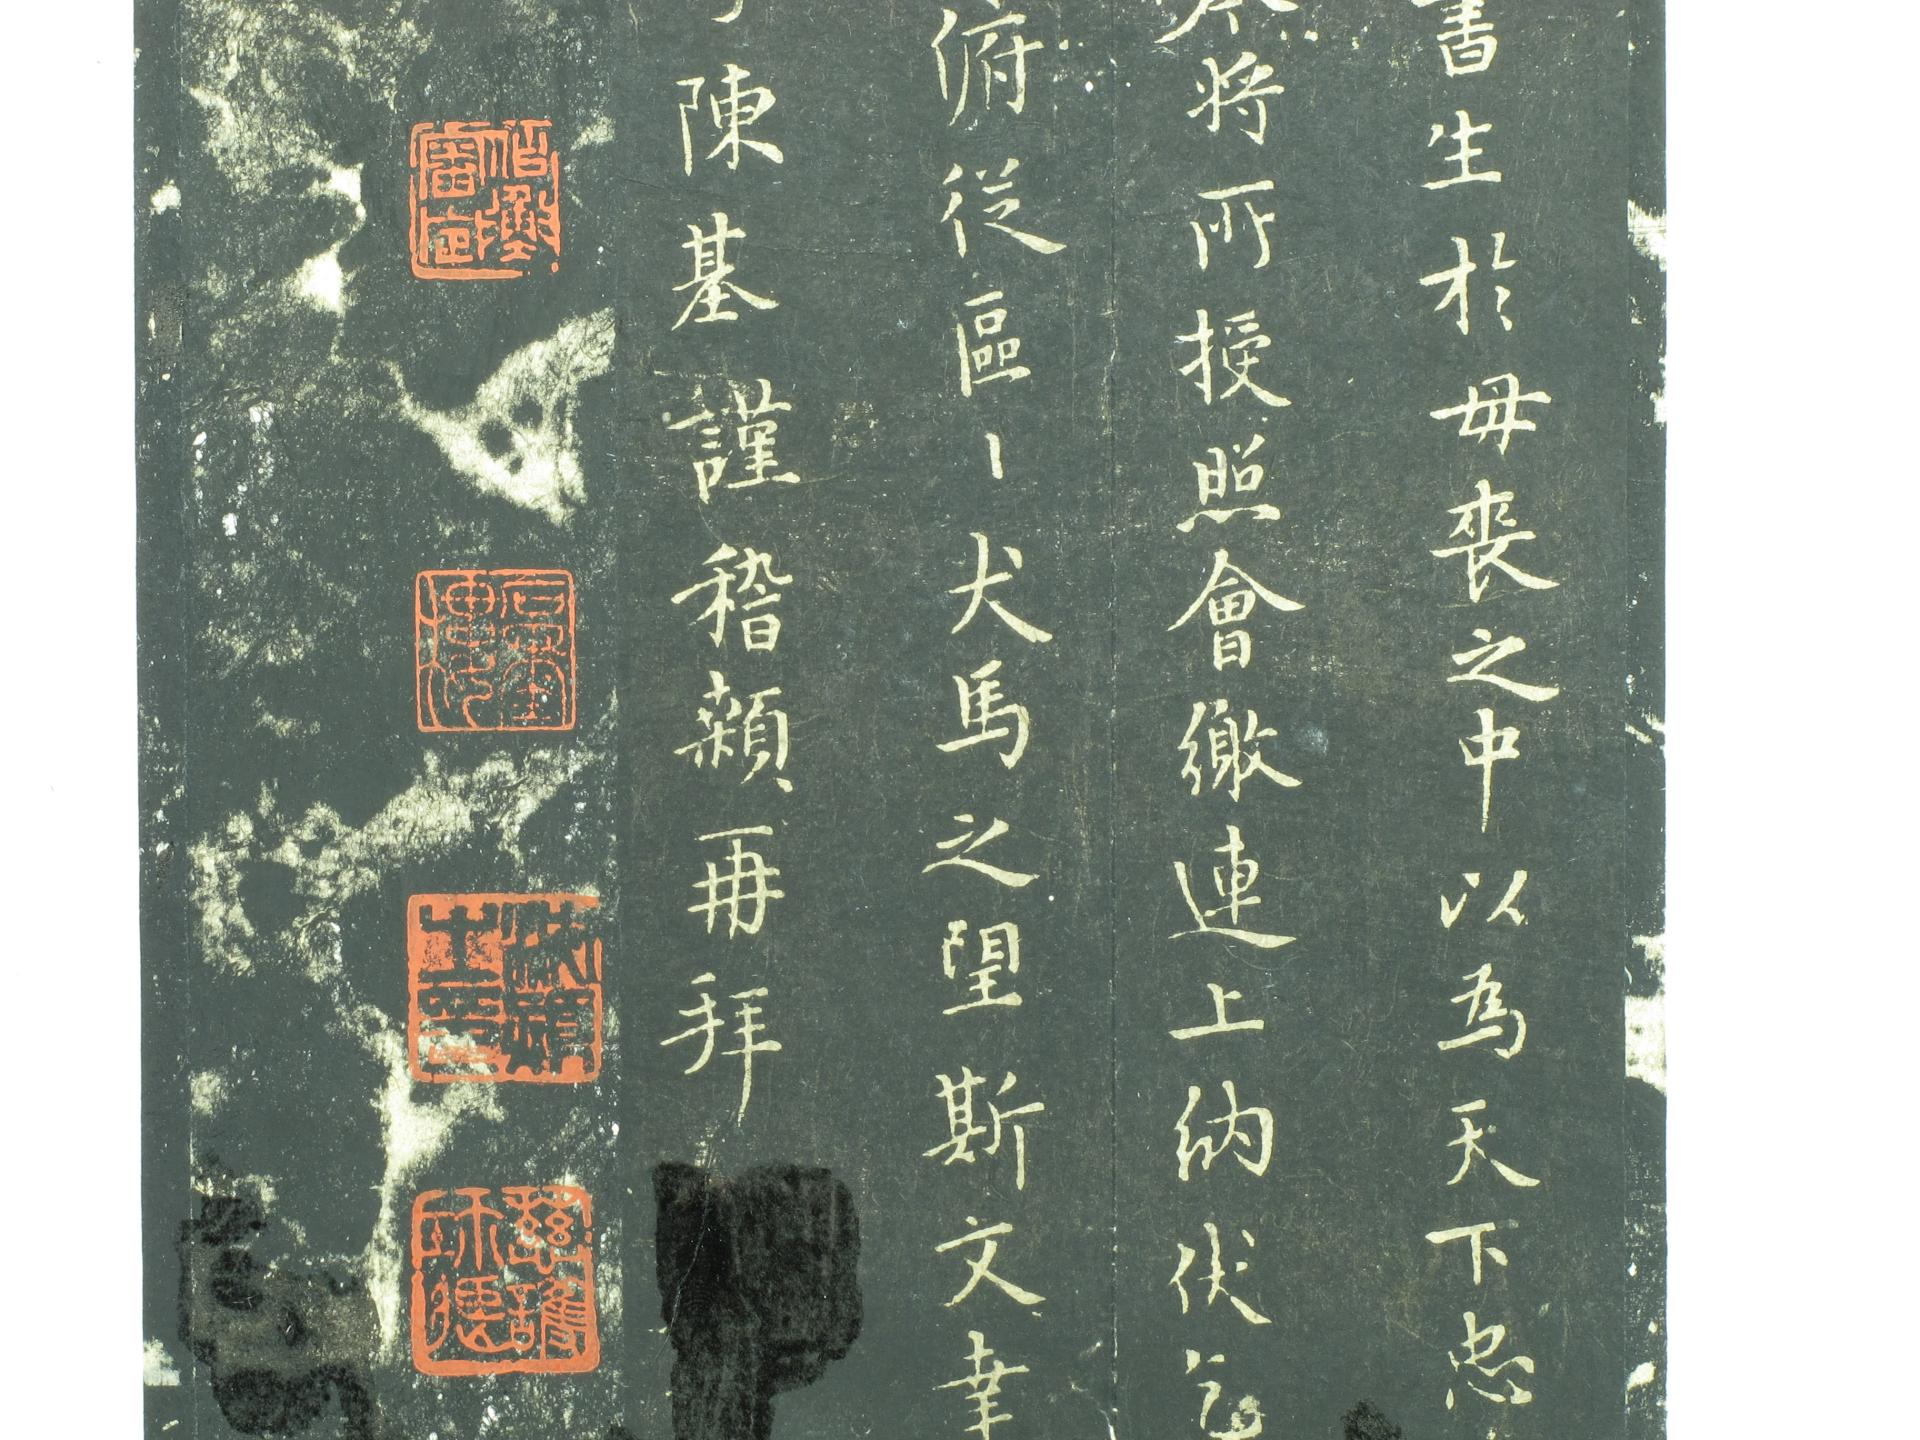 書生於毋喪之中以為天下忠
今將所授照會繳連上納伏乞
俯從區〻犬馬之望斯文幸
陳基謹稽顙再拜